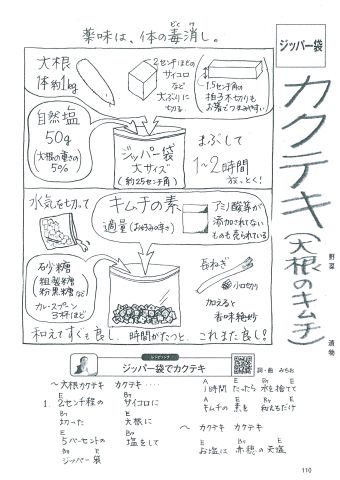 薬味は、体の毒消し。
どくけ
ジッパー袋
カクテキ(大根のキムチ)
野菜
漬物
大根
1体約1kg
2センチほどの
サイコロ
など
大ぶりに
切る
1.5センチ角の
拍子木切りも
お箸でつまみやすい
自然塩
50g
(大根の重さの
5%)
ジッパー袋
大サイズ
(約25センチ角)
まぶして
1〜2時間
放っとく!
水気を切って
キムチの素
適量(お好みの辛さ)
アミノ酸等が
添加されてない
ものも売られている
砂糖
粗製糖
粉黒糖など
カレースプーン
3杯ほど
長ねぎ
小口切り
加えると
香味絶妙
和えてすぐも良し、1時間がたつと、これまた良し!
レシピソング
ジッパー袋でカクテキ
詞・曲 みちお
〜大根カクテキ カクテキ‥‥
E B7
1. 2センチ程の サイコロに
B7 E
切った 大根に
E B7
5パーセントの 塩をして
B7 E
ジッパー袋
A E B7 E
1時間たったら 水を捨てて
A E B7 E
キムチの素を 和えるだけ
〜 カクテキ カクテキ
E B7 E
お塩は 赤穂の天塩
110